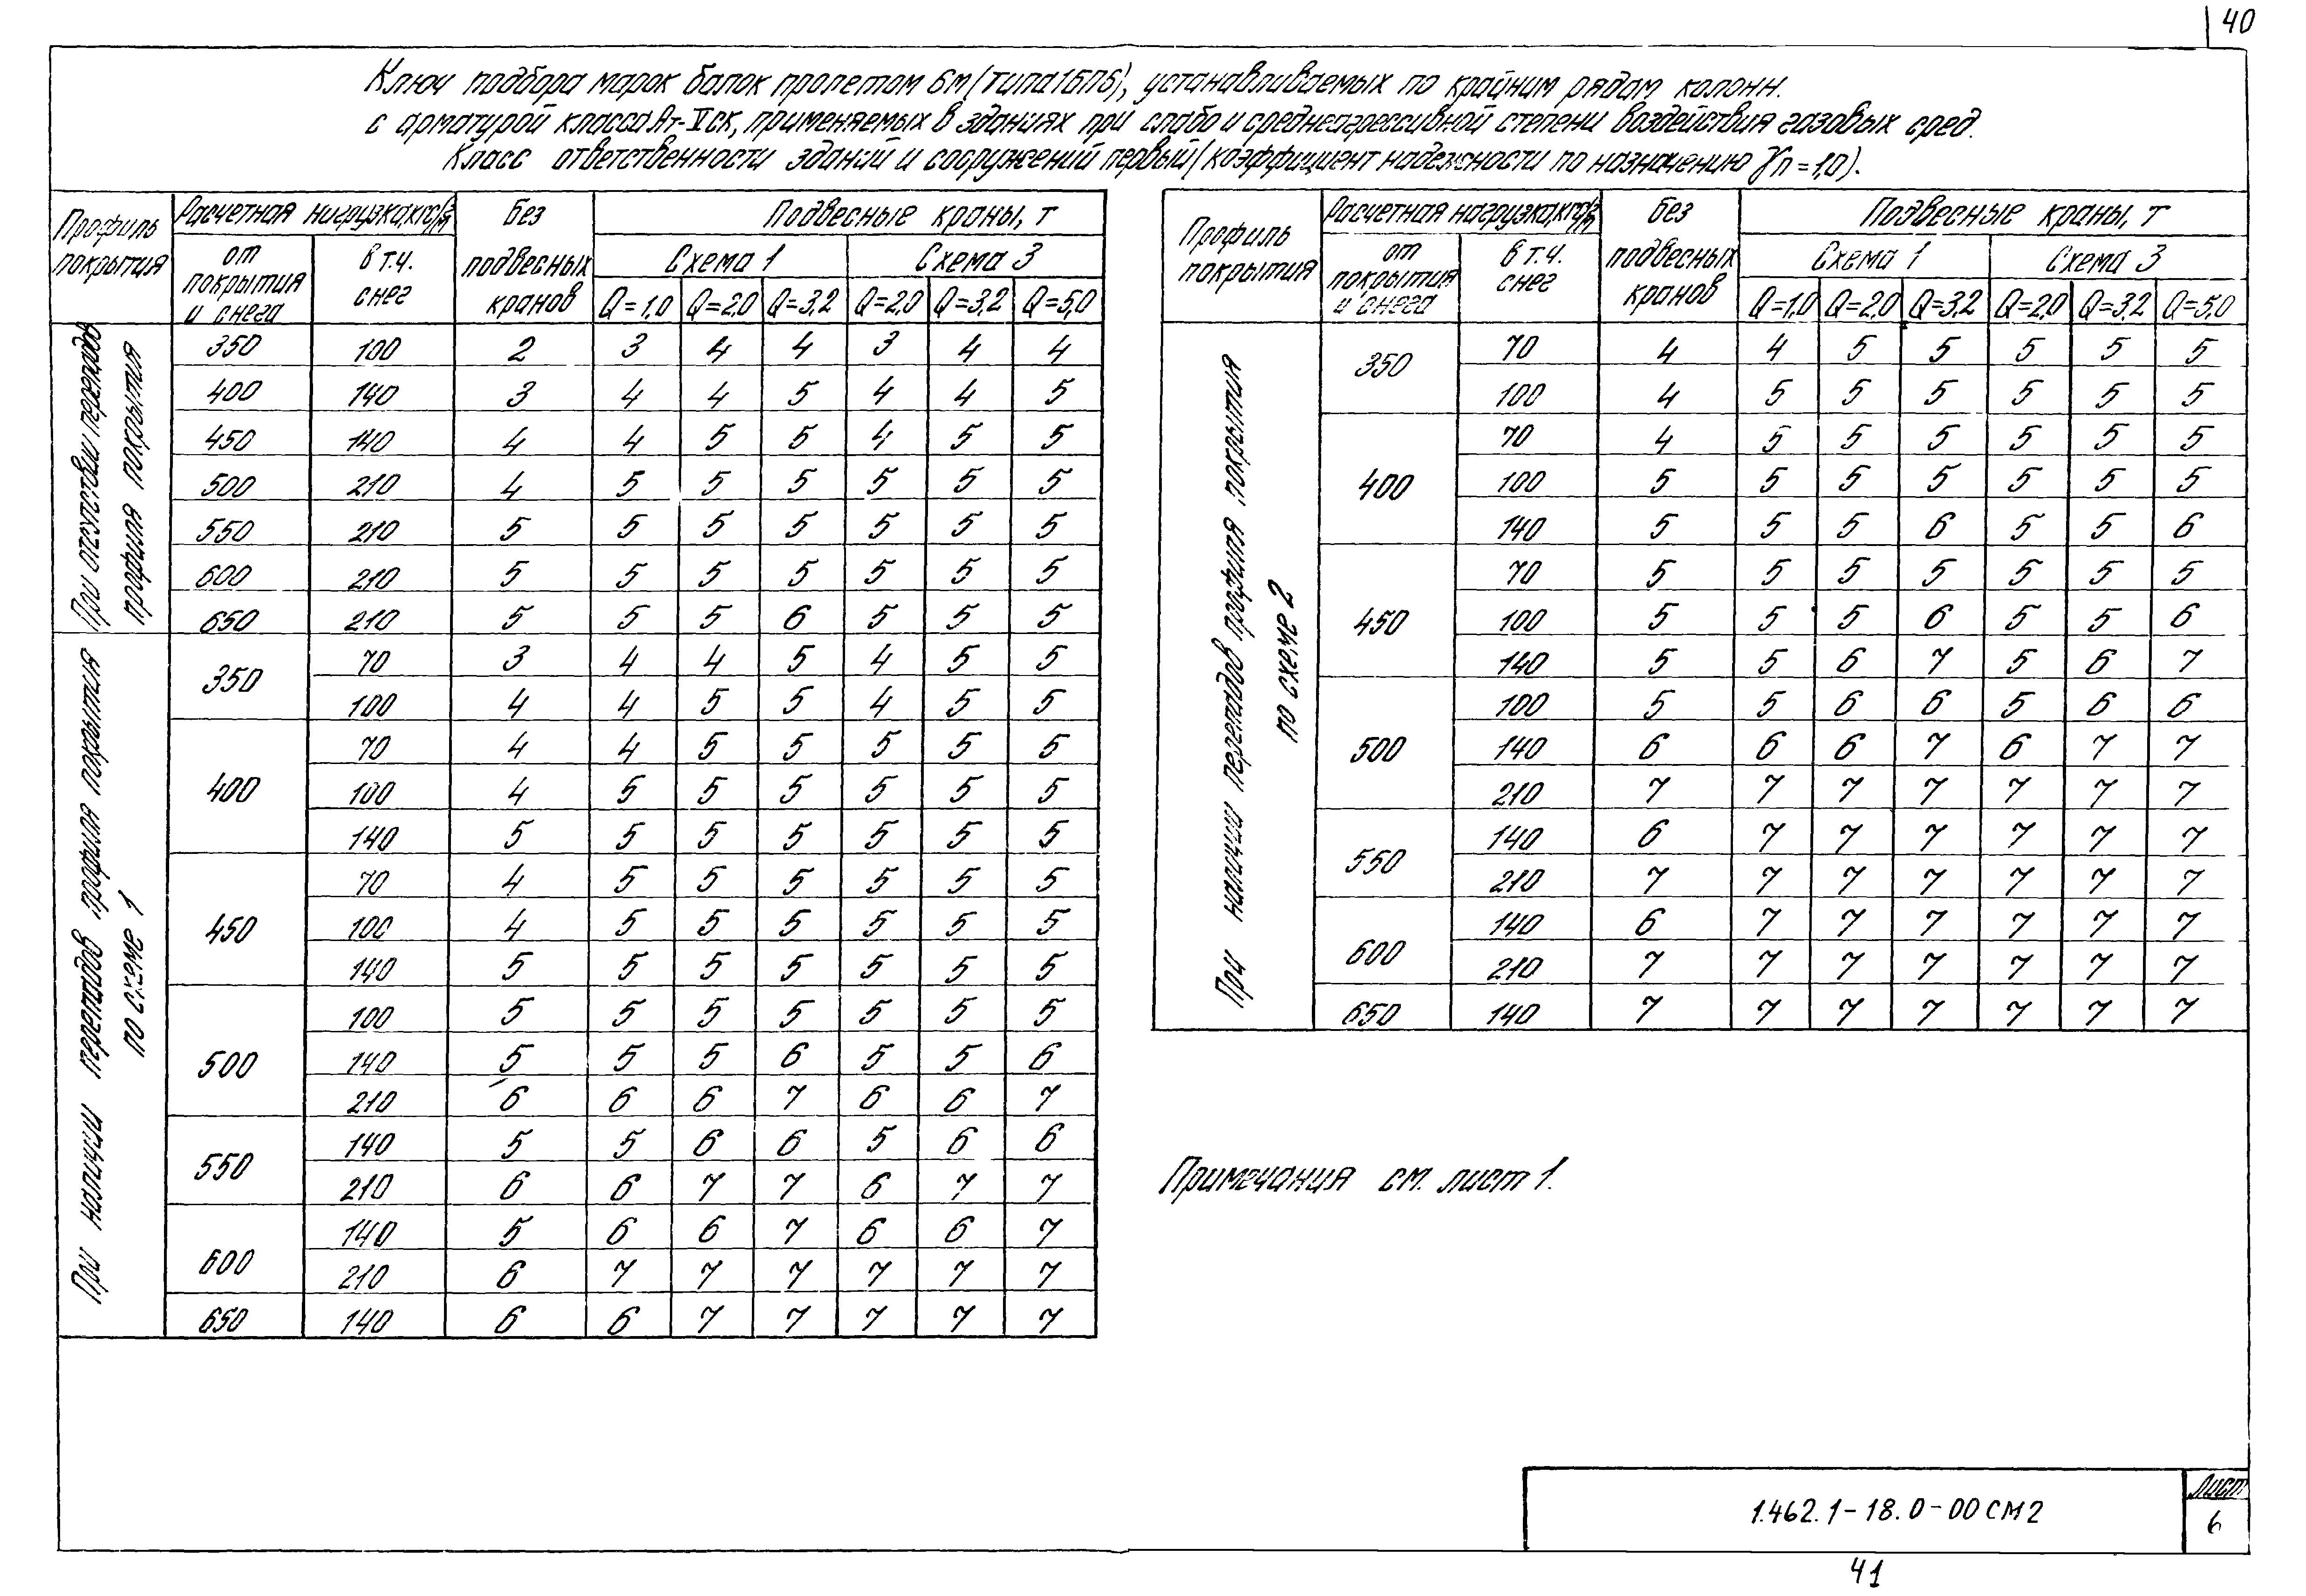 40
Ключ подбора марок балок пролетом 6м (типа 1БП6), устанавливаемых по крайним рядам колонн.
с арматурой класса Ат-Vск, применяемых в зданиях при слабо и среднеагрессивной степени воздействия газовых сред.
Класс ответственности зданий и сооружений первый (коэффициент надежности по назначению γn = 1,0).
Профиль покрытия | Расчетная нагрузка, кгс/м² | Без подвесных кранов | Подвесные краны, т
от покрытия и снега | в т.ч. снег | Схема 1 | Схема 3
Q=1,0 Q=2,0 Q=3,2 Q=2,0 Q=3,2 Q=5,0
При отсутствии перепадов профиля покрытия
350 100 2 3 4 4 3 4 4
400 140 3 4 4 5 4 4 5
450 140 4 4 5 5 4 5 5
500 210 4 5 5 5 5 5 5
550 210 5 5 5 5 5 5 5
600 210 5 5 5 5 5 5 5
650 210 5 5 5 6 5 5 5
При наличии перепадов профиля покрытия по схеме 1
350 70 3 4 4 5 4 5 5
100 4 4 5 5 4 5 5
400 70 4 4 5 5 5 5 5
100 4 5 5 5 5 5 5
140 5 5 5 5 5 5 5
450 70 4 5 5 5 5 5 5
100 4 5 5 5 5 5 5
140 5 5 5 5 5 5 5
500 100 5 5 5 5 5 5 5
140 5 5 5 6 5 5 6
210 6 6 6 7 6 6 7
550 140 5 5 6 6 5 6 6
210 6 6 7 7 6 7 7
600 140 5 6 6 7 6 6 7
210 6 7 7 7 7 7 7
650 140 6 6 7 7 7 7 7
Профиль покрытия | Расчетная нагрузка, кгс/м² | Без подвесных кранов | Подвесные краны, т
от покрытия и снега | в т.ч. снег | Схема 1 | Схема 3
Q=1,0 Q=2,0 Q=3,2 Q=2,0 Q=3,2 Q=5,0
При наличии перепадов профиля покрытия по схеме 2
350 70 4 4 5 5 5 5 5
100 4 5 5 5 5 5 5
400 70 4 5 5 5 5 5 5
100 5 5 5 5 5 5 5
140 5 5 5 6 5 5 6
450 70 5 5 5 5 5 5 5
100 5 5 5 6 5 5 6
140 5 5 6 7 5 6 7
500 100 5 5 6 6 5 6 6
140 6 6 6 7 6 7 7
210 7 7 7 7 7 7 7
550 140 6 7 7 7 7 7 7
210 7 7 7 7 7 7 7
600 140 6 7 7 7 7 7 7
210 7 7 7 7 7 7 7
650 140 7 7 7 7 7 7 7
Примечания см. лист 1.
1.462.1-18.0-00СМ2
Лист
6
41